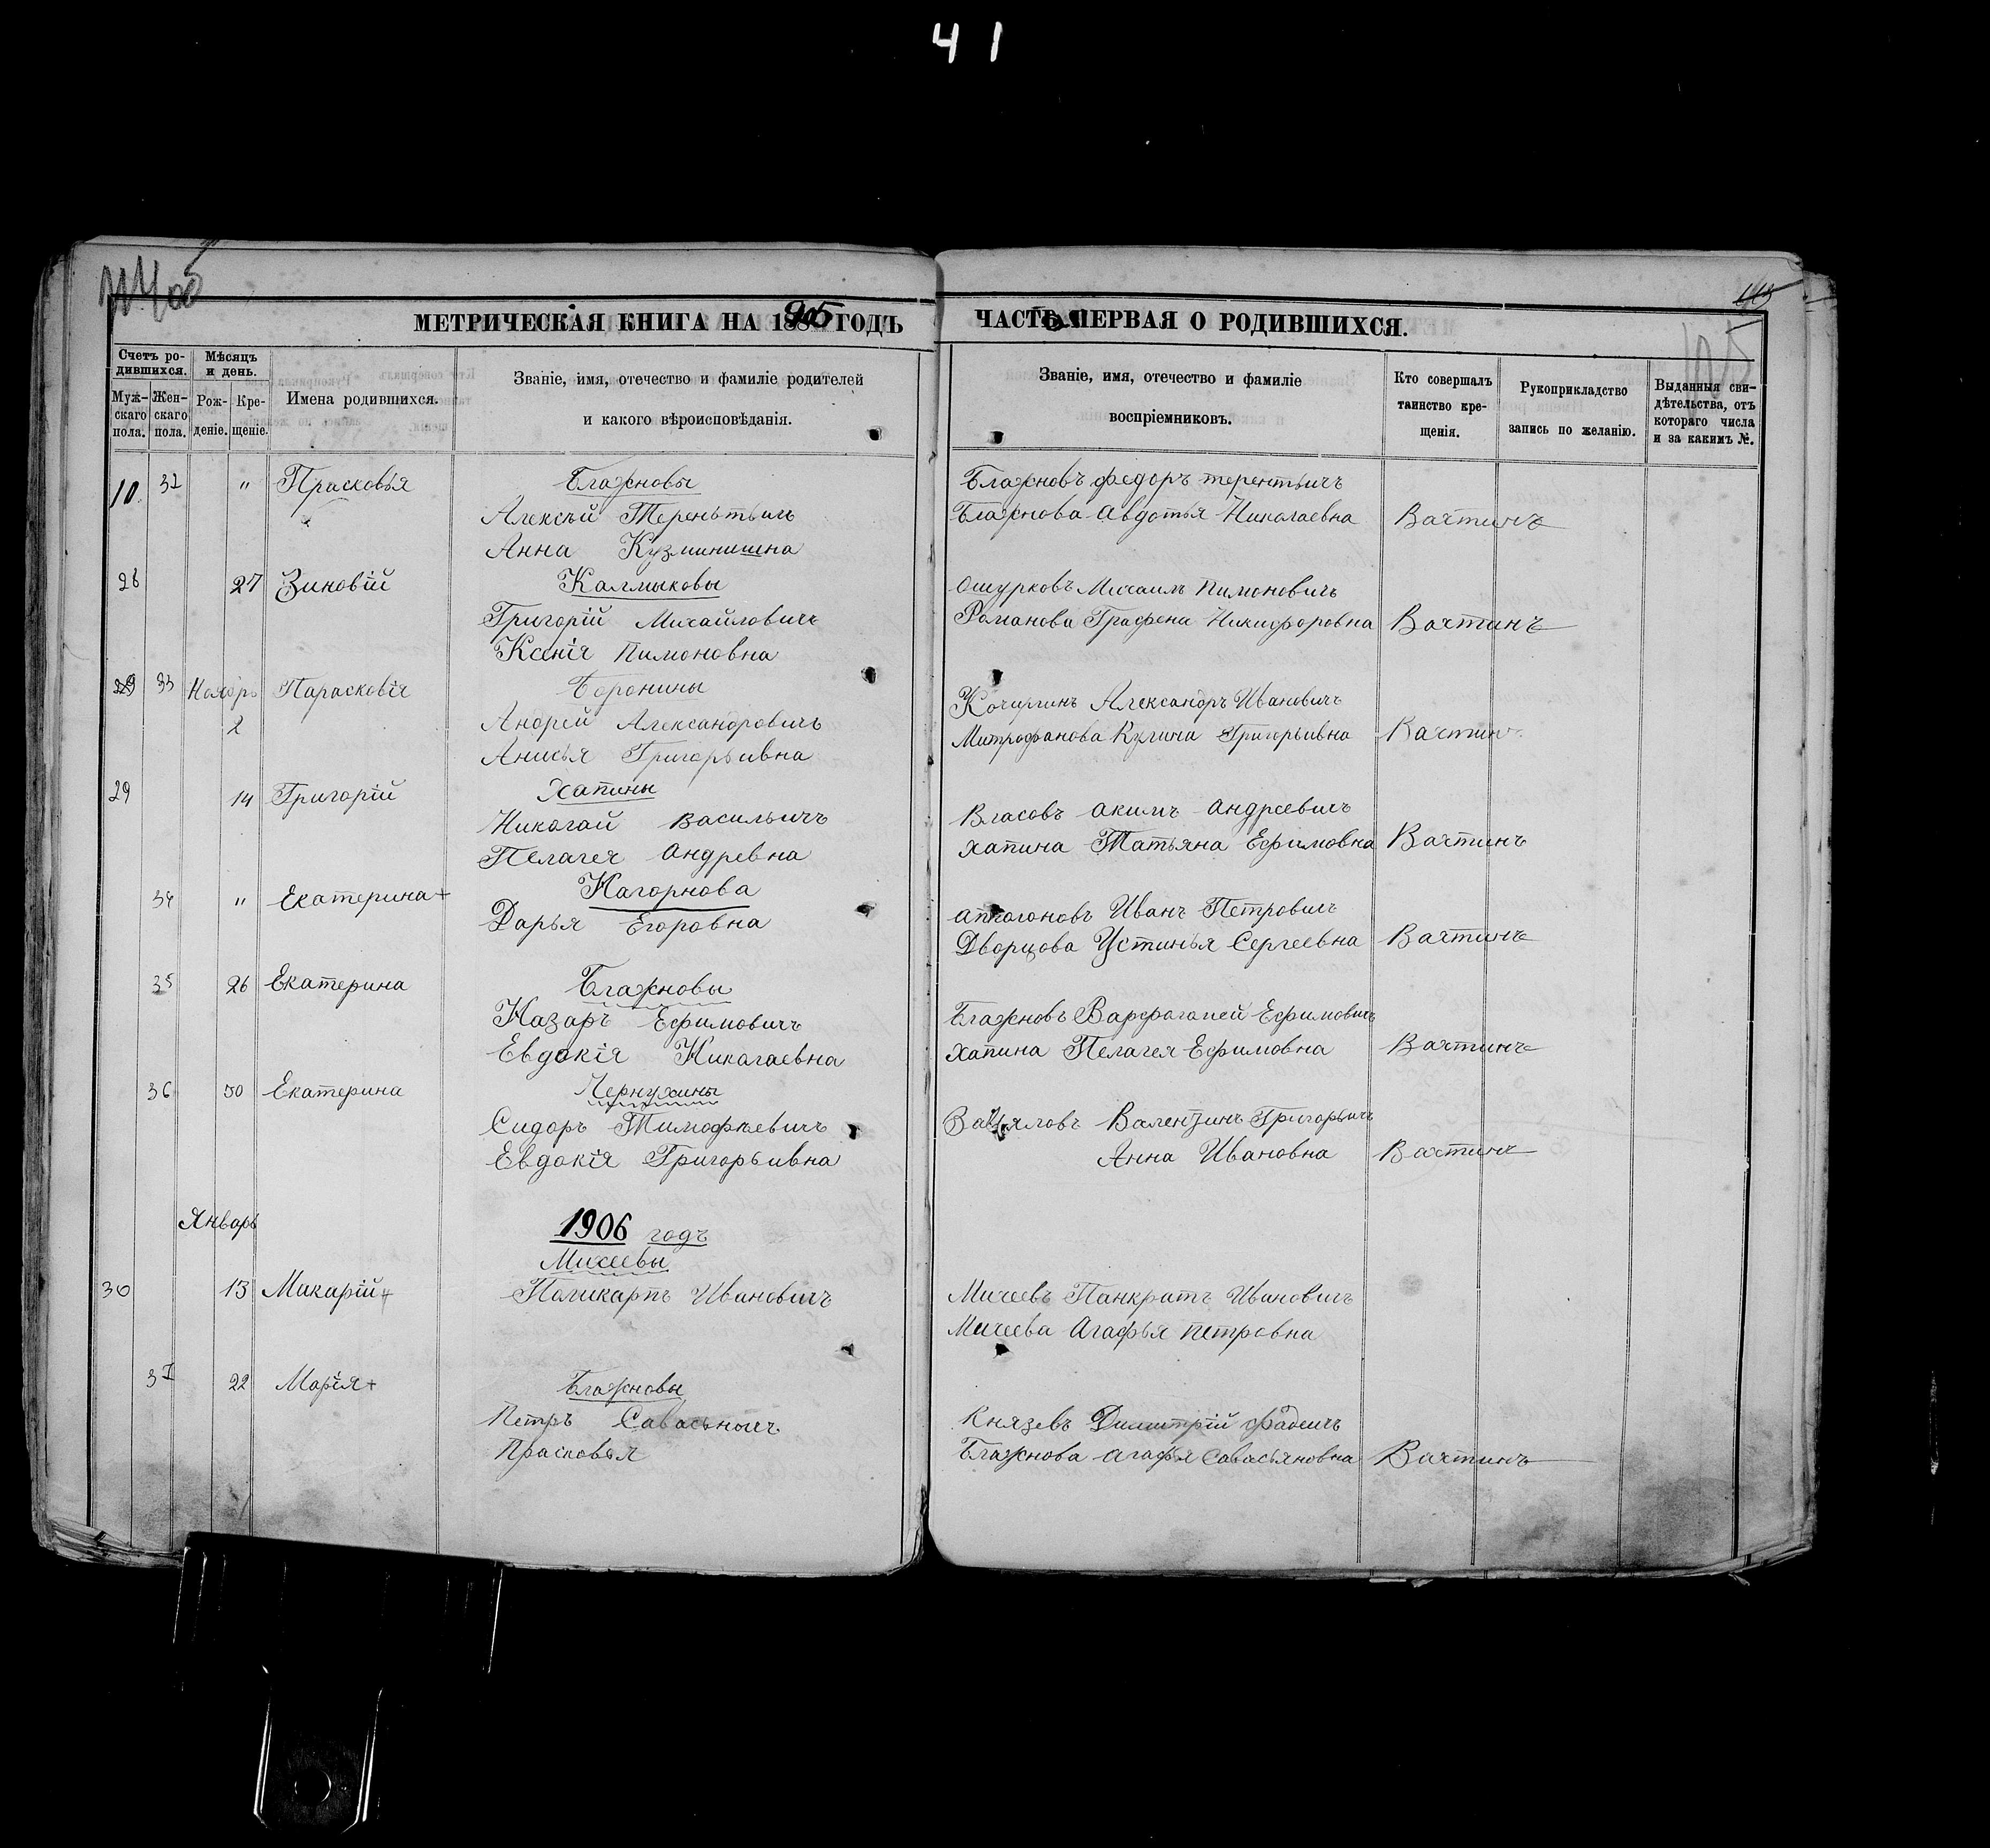 41
105
МЕТРИЧЕСКАЯ КНИГА НА 1905 ГОДЪ
ЧАСТЬ ПЕРВАЯ О РОДИВШИХСЯ.
Счетъ родившихся.
Мужскаго пола.
Женскаго пола.
Мѣсяцъ и день.
Рожденіе.
Крещеніе.
Имена родившихся.
Званіе, имя, отечество и фамиліе родителей
и какого вѣроисповѣданія.
Званіе, имя, отечество и фамиліе
воспріемниковъ.
Кто совершалъ таинство крещенія.
Рукоприкладство
запись по желанію.
Выданныя свидѣтельства, отъ котораго числа и за какимъ №.
10. 32 " Прасковья Блажновы
Алексѣй Тереньтьичъ
Анна Кузминишна
Блажновъ Федоръ терентьичъ
Блажнова Авдотья Николаевна Вахтинъ
28 27 Зиновій Калмыковы
Григорій Михайловичъ
Ксенія Пимоновна
Ошурковъ Михаилъ Пимоновичъ
Романова Графена Никифоровна Вахтинъ
33 Ноябрь Парасковія Боронины
2 Андрей Александровичъ
Анисья Григорьивна
Кочергинъ Александръ Ивановичъ
Митрофанова Кулина Григорьивна Вахтинъ
29 14 Григорій Хапины
Николай Васильичъ
Пелагея Андревна
Власовъ Акимъ Андреевичъ
Хапина Татьяна Ефимовна Вахтинъ
34 " Екатерина+ Нагорнова
Дарья Егоровна
Иванъ Петровичъ
Дворцова Устинья Сергеевна Вахтинъ
35 26 Екатерина Блажновы
Назаръ Ефимовичъ
Евдокія Николаевна
Блажновъ Варфаламей Ефимовичъ
Хапина Пелагея Ефимовна Вахтинъ
36 30 Екатерина Чернухины
Сидоръ Тимофѣевичъ
Евдокія Григорьивна
Завьяловъ Валентинъ Григорьичъ
Анна Ивановна Вахтинъ
Январь 1906 годъ
Михеевы
30 13 Макарій+ Поликарпъ Ивановичъ
Михеевъ Панкратъ Ивановичъ
Михеева Агафья Петровна
37 22 Марія+ Блажновы
Петръ
Прасковья
Князевъ Димитрій Фадеичъ
Блажнова Агафья Савасьяновна Вахтинъ